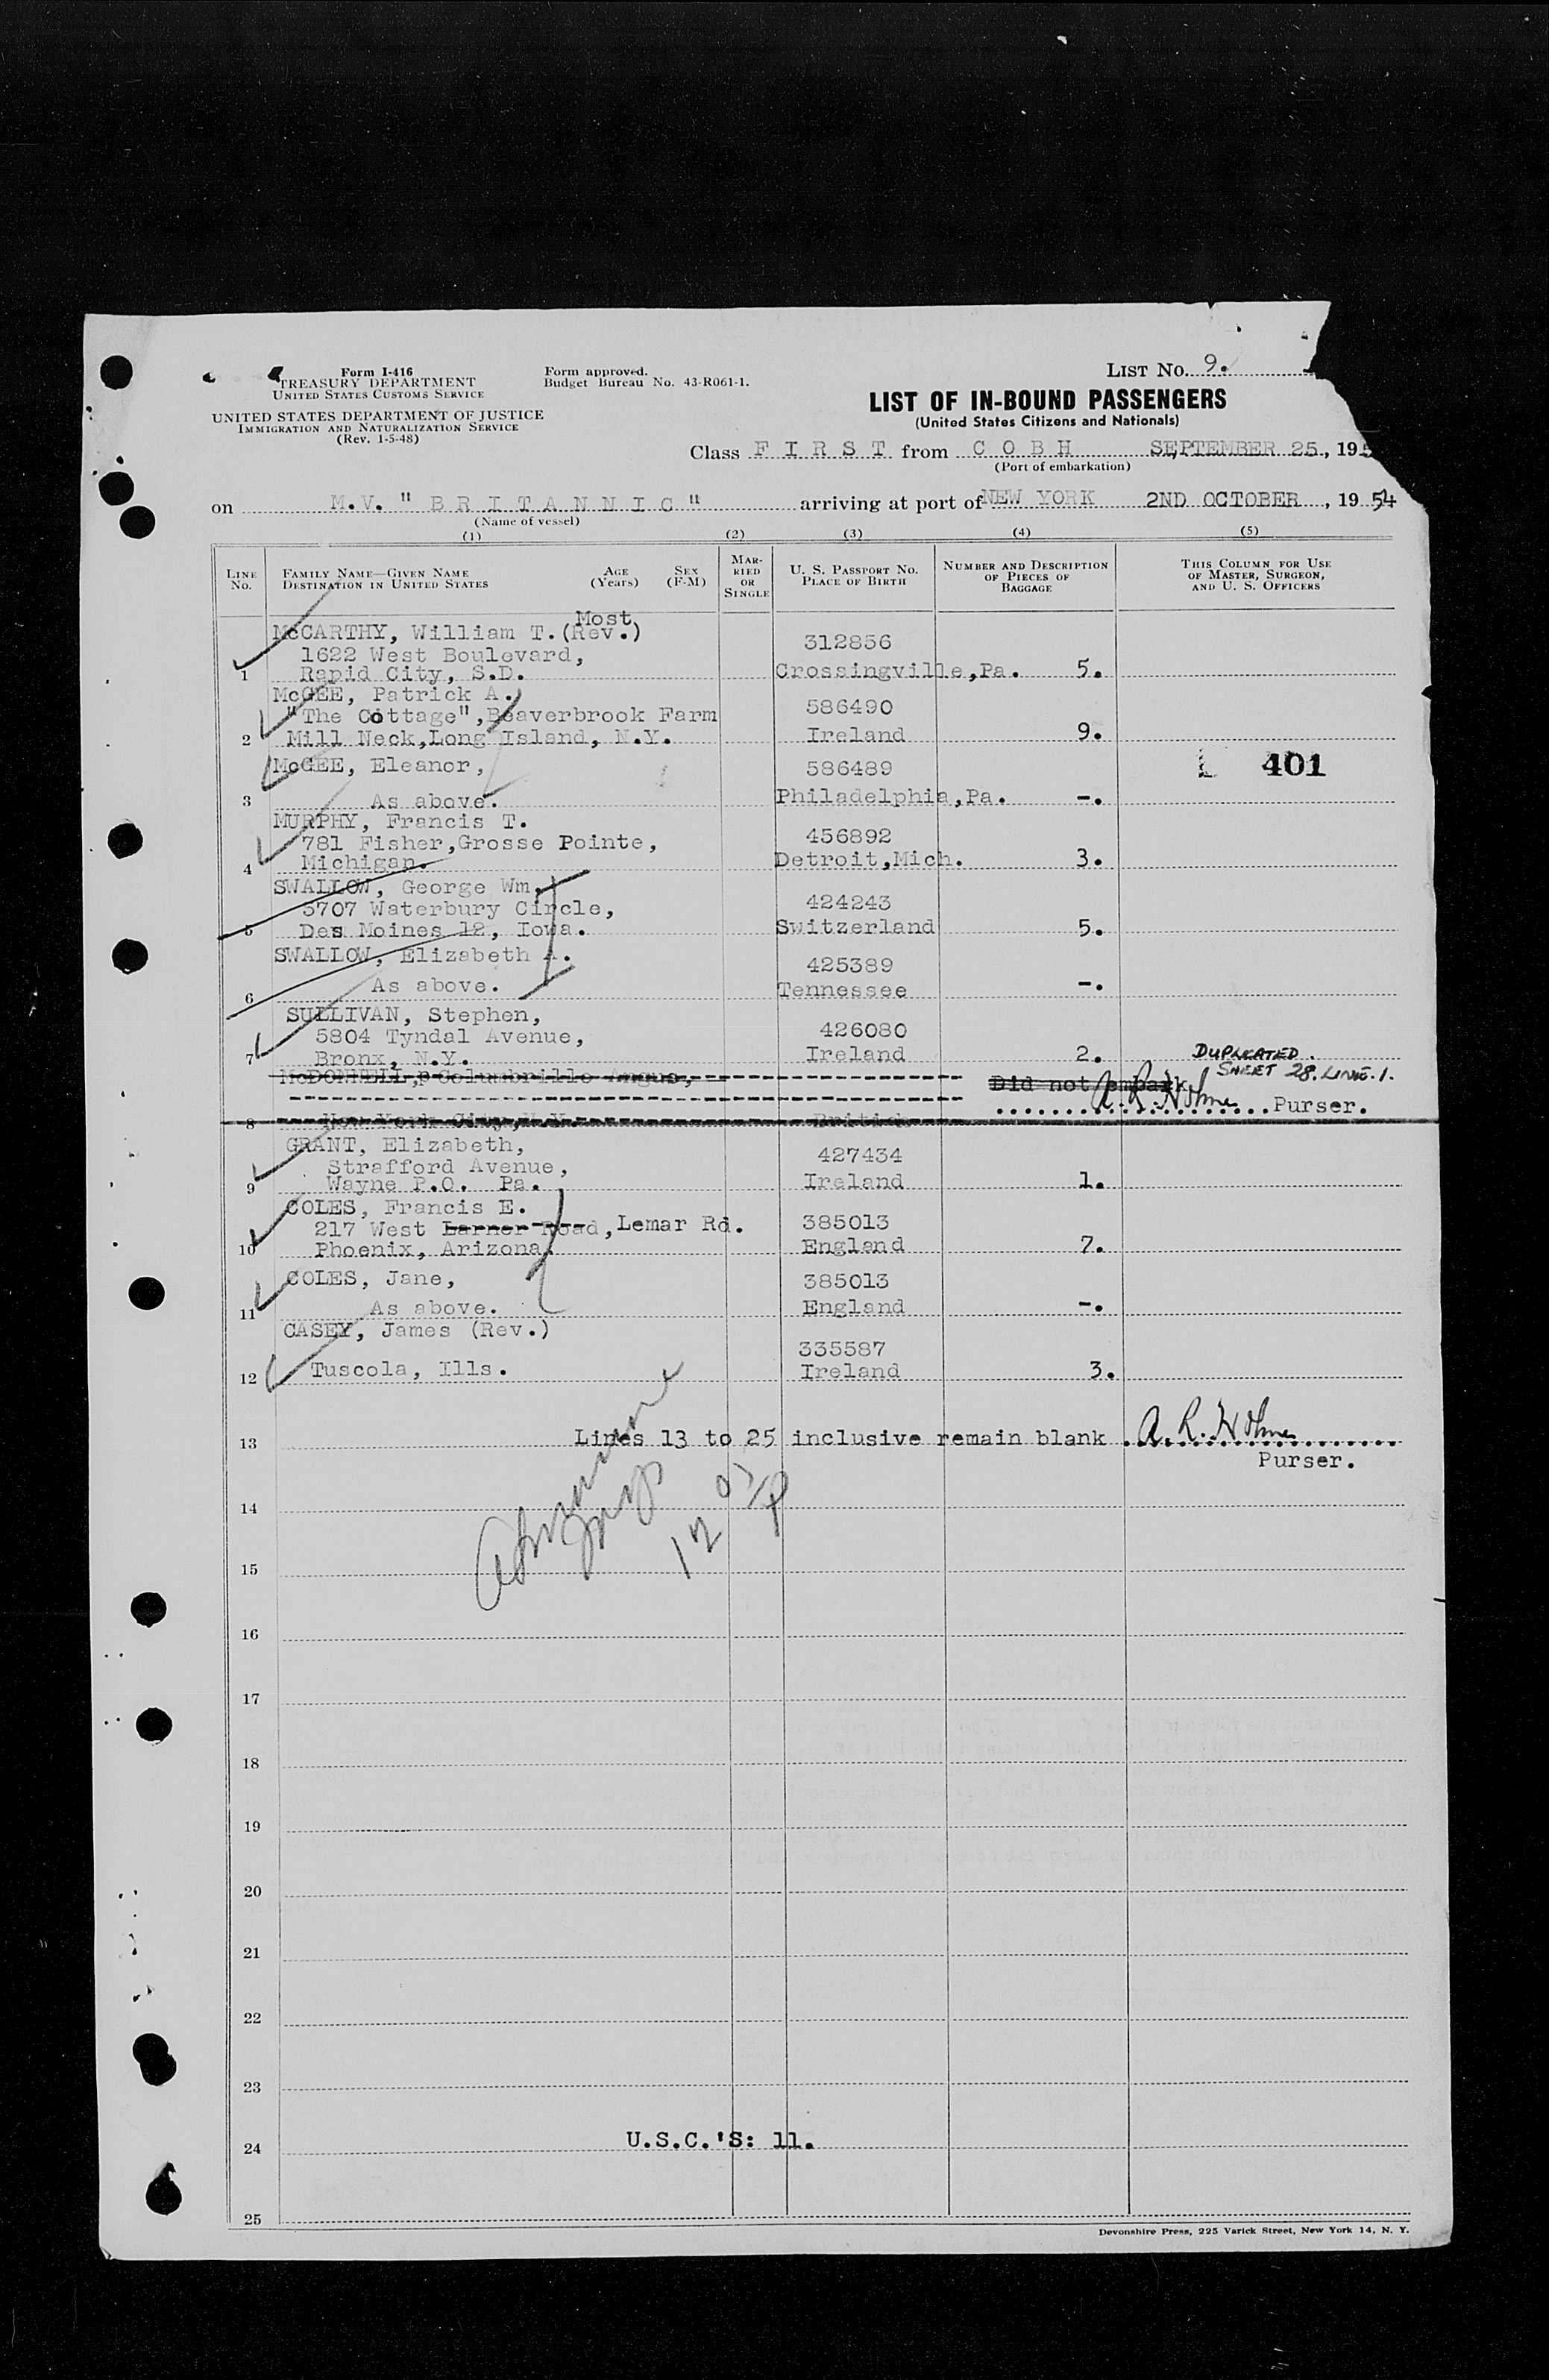 Form I-416
TREASURY DEPARTMENT
UNITED STATES CUSTOMS SERVICE
UNITED STATES DEPARTMENT OF JUSTICE
IMMIGRATION AND NATURALIZATION SERVICE
(Rev. 1-5-48)
Form approved.
Budget Bureau No. 43-R061-1.
LIST NO. 9.
LIST OF IN-BOUND PASSENGERS
(United States Citizens and Nationals)
Class F I R S T from C O B H SEPTEMBER 25, 195
(Port of embarkation)
on M.V. " B R I T A N N I C " arriving at port of NEW YORK 2ND OCTOBER, 19 54
(Name of vessel)
(1) (2) (3) (4) (5)
LINE NO.
FAMILY NAME—GIVEN NAME
DESTINATION IN UNITED STATES
AGE (Years)
SEX (F-M)
MARRIED OR SINGLE
U. S. PASSPORT NO.
PLACE OF BIRTH
NUMBER AND DESCRIPTION OF PIECES OF BAGGAGE
THIS COLUMN FOR USE OF MASTER, SURGEON, AND U. S. OFFICERS
Most
McCARTHY, William T. (Rev.) 312856
1622 West Boulevard,
1 Rapid City, S.D. Crossingville,Pa. 5.
McGEE, Patrick A.
"The Cottage",Beaverbrook Farm 586490
2 Mill Neck,Long Island, N.Y. Ireland 9.
McGEE, Eleanor, 586489 401
3 As above. Philadelphia,Pa. -.
MURPHY, Francis T.
781 Fisher,Grosse Pointe, 456892
4 Michigan. Detroit,Mich. 3.
SWALLOW, George Wm.
3707 Waterbury Circle, 424243
5 Des Moines 12, Iowa. Switzerland 5.
SWALLOW, Elizabeth A. 425389
6 As above. Tennessee -.
SULLIVAN, Stephen,
5804 Tyndal Avenue, 426080
7 Bronx, N.Y. Ireland 2. DUPLICATED.
SHEET 28. LINE. 1.
McDONNELL, Columbrille Angus, Did not embark
A. R. Holme Purser.
8 New York City, N.Y. British
GRANT, Elizabeth,
Strafford Avenue, 427434
9 Wayne P.O. Pa. Ireland 1.
COLES, Francis E.
217 West Larner Road, Lemar Rd. 385013
10 Phoenix, Arizona. England 7.
COLES, Jane, 385013
11 As above. England -.
CASEY, James (Rev.) 335587
12 Tuscola, Ills. Ireland 3.
13 Lines 13 to 25 inclusive remain blank A. R. Holme
Purser.
14
15
16
17
18
19
20
21
22
23
24 U.S.C.'S: 11.
25
Devonshire Press, 225 Varick Street, New York 14, N. Y.